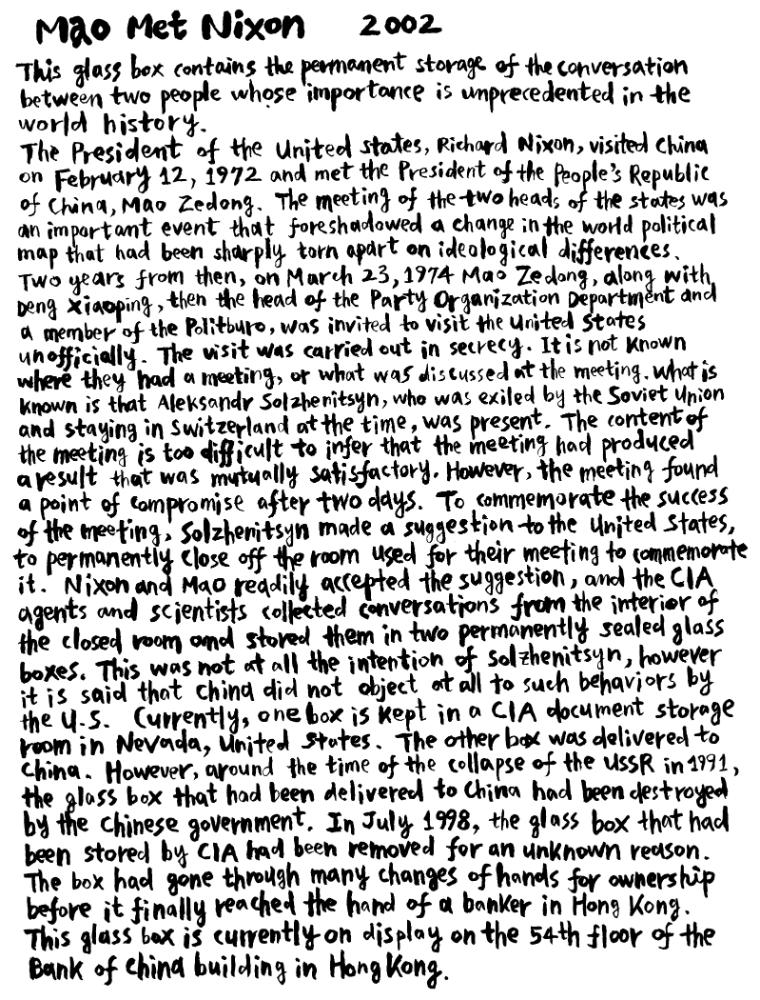 Mao Met Nixon 2002
This glass box contains the permanent storage of the conversation
between two people whose importance is unprecedented in the
world history.
The President of the United States, Richard Nixon, visited China
on February 12, 1972 and met the President of the People's Republic
of China, Mao Zedong. The meeting of the two heads of the states was
an important event that foreshadowed a change in the world political
map that had been sharply torn apart on ideological differences.
Two years from then, on March 23, 1974 Mao Zedong, along with
Deng Xiaoping, then the head of the Party Organization Department and
a member of the Politburo, was invited to visit the United States
unofficially. The visit was carried out in secrecy. It is not known
where they had a meeting, or what was discussed at the meeting. What is
known is that Aleksandr Solzhenitsyn, who was exiled by the Soviet Union
and staying in Switzerland at the time, was present. The content of
the meeting is too difficult to infer that the meeting had produced
a result that was mutually satisfactory. However, the meeting found
a point of compromise after two days. To commemorate the success
of the meeting, Solzhenitsyn made a suggestion to the United States,
to permanently close off the room used for their meeting to commemorate
it. Nixon and Mao readily accepted the suggestion, and the CIA
agents and scientists collected conversations from the interior of
the closed room and stored them in two permanently sealed glass
boxes. This was not at all the intention of Solzhenitsyn, however
it is said that China did not object at all to such behaviors by
the U.S. Currently, one box is kept in a CIA document storage
room in Nevada, United States. The other box was delivered to
China. However, around the time of the collapse of the USSR in 1991,
the glass box that had been delivered to China had been destroyed
by the Chinese government. In July 1998, the glass box that had
been stored by CIA had been removed for an unknown reason.
The box had gone through many changes of hands for ownership
before it finally reached the hand of a banker in Hong Kong.
This glass box is currently on display on the 54th floor of the
Bank of China building in Hong Kong.